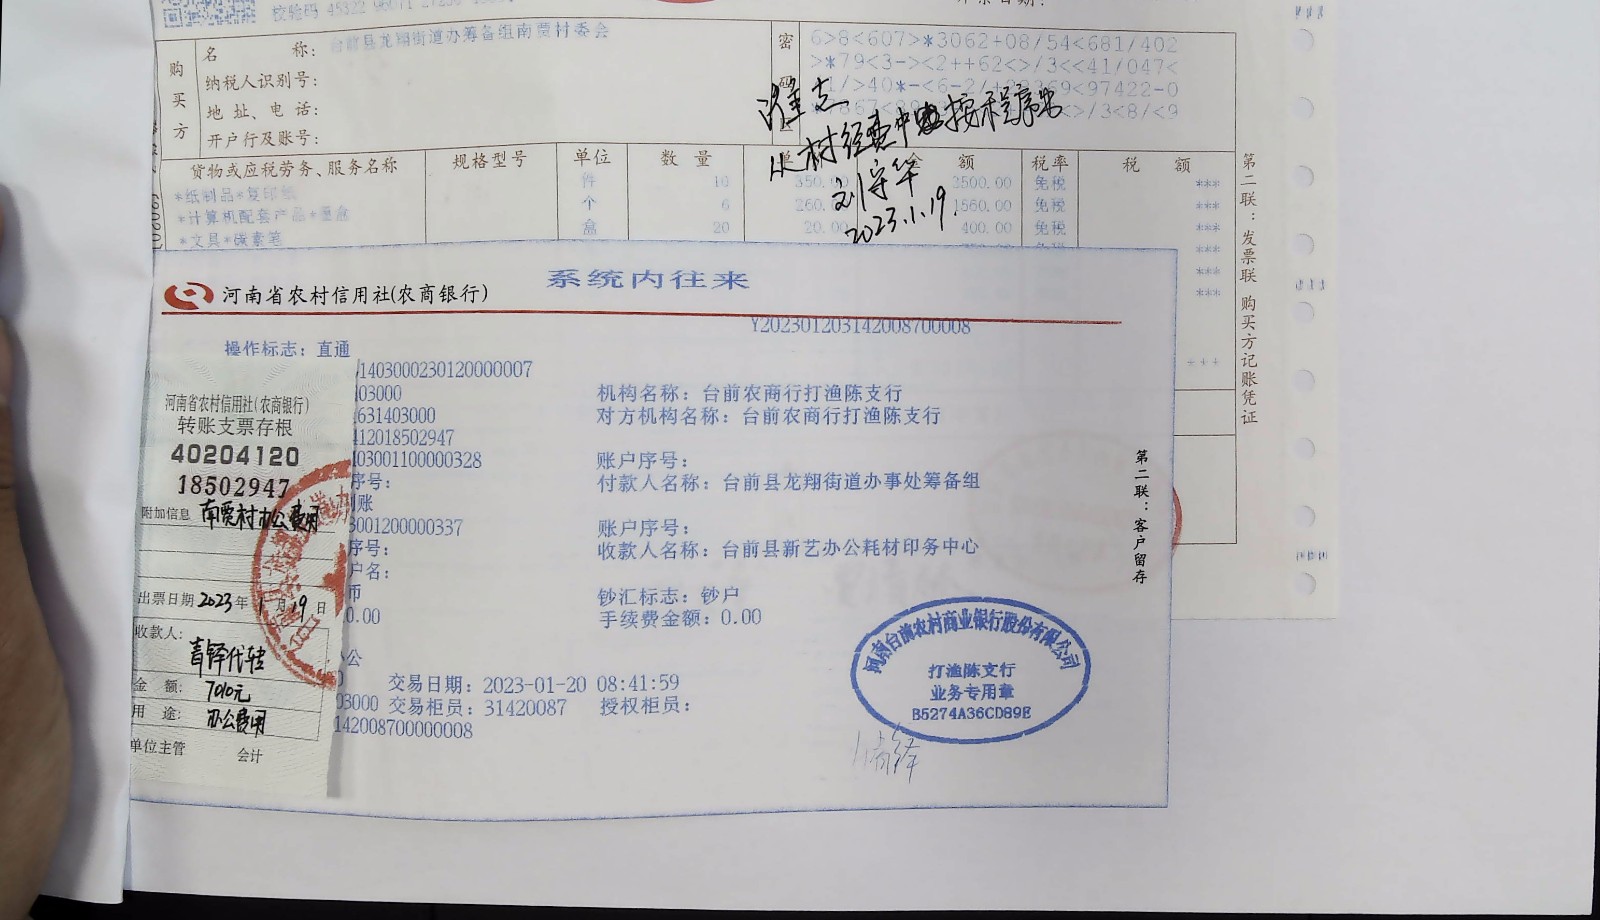 校验码 45322
购买方
名 称: 台前县龙翔街道办筹备组南贾村委会
纳税人识别号:
地址、电话:
开户行及账号:
密码
6>8<607>*3062+08/54<681/402
>*79<3-><2++62<>/3<<41/047<
1/>40*-<6-2/+
69<97422-0
>/3<8/<9
从村经费中按程序出
刘守华
2023.1.19.
货物或应税劳务、服务名称 规格型号 单位 数量 额 税率 税额
*纸制品*复印纸 件 10 350.00 3500.00 免税 ***
*计算机配套产品*墨盒 个 6 260. 1560.00 免税 ***
*文具*碳素笔 盒 20 20.00 400.00 免税 ***
***
***
***
第二联:发票联 购买方记账凭证
河南省农村信用社(农商银行) 系统内往来
Y202301203142008700008
操作标志: 直通
/1403000230120000007
03000 机构名称: 台前农商行打渔陈支行
631403000 对方机构名称: 台前农商行打渔陈支行
412018502947
03001100000328 账户序号:
序号: 付款人名称: 台前县龙翔街道办事处筹备组
账
3001200000337 账户序号:
序号: 收款人名称: 台前县新艺办公耗材印务中心
户名:
币 钞汇标志: 钞户
0.00 手续费金额: 0.00
公
交易日期: 2023-01-20 08:41:59
03000 交易柜员: 31420087 授权柜员:
142008700000008
第二联:客户留存
河南台前农村商业银行股份有限公司
打渔陈支行
业务专用章
B5274A36CD89E
河南省农村信用社(农商银行)
转账支票存根
40204120
18502947
附加信息 南贾村办公费用
出票日期 2023年 1月 19日
收款人:
金 额: 7010元
用 途: 办公费用
单位主管 会计